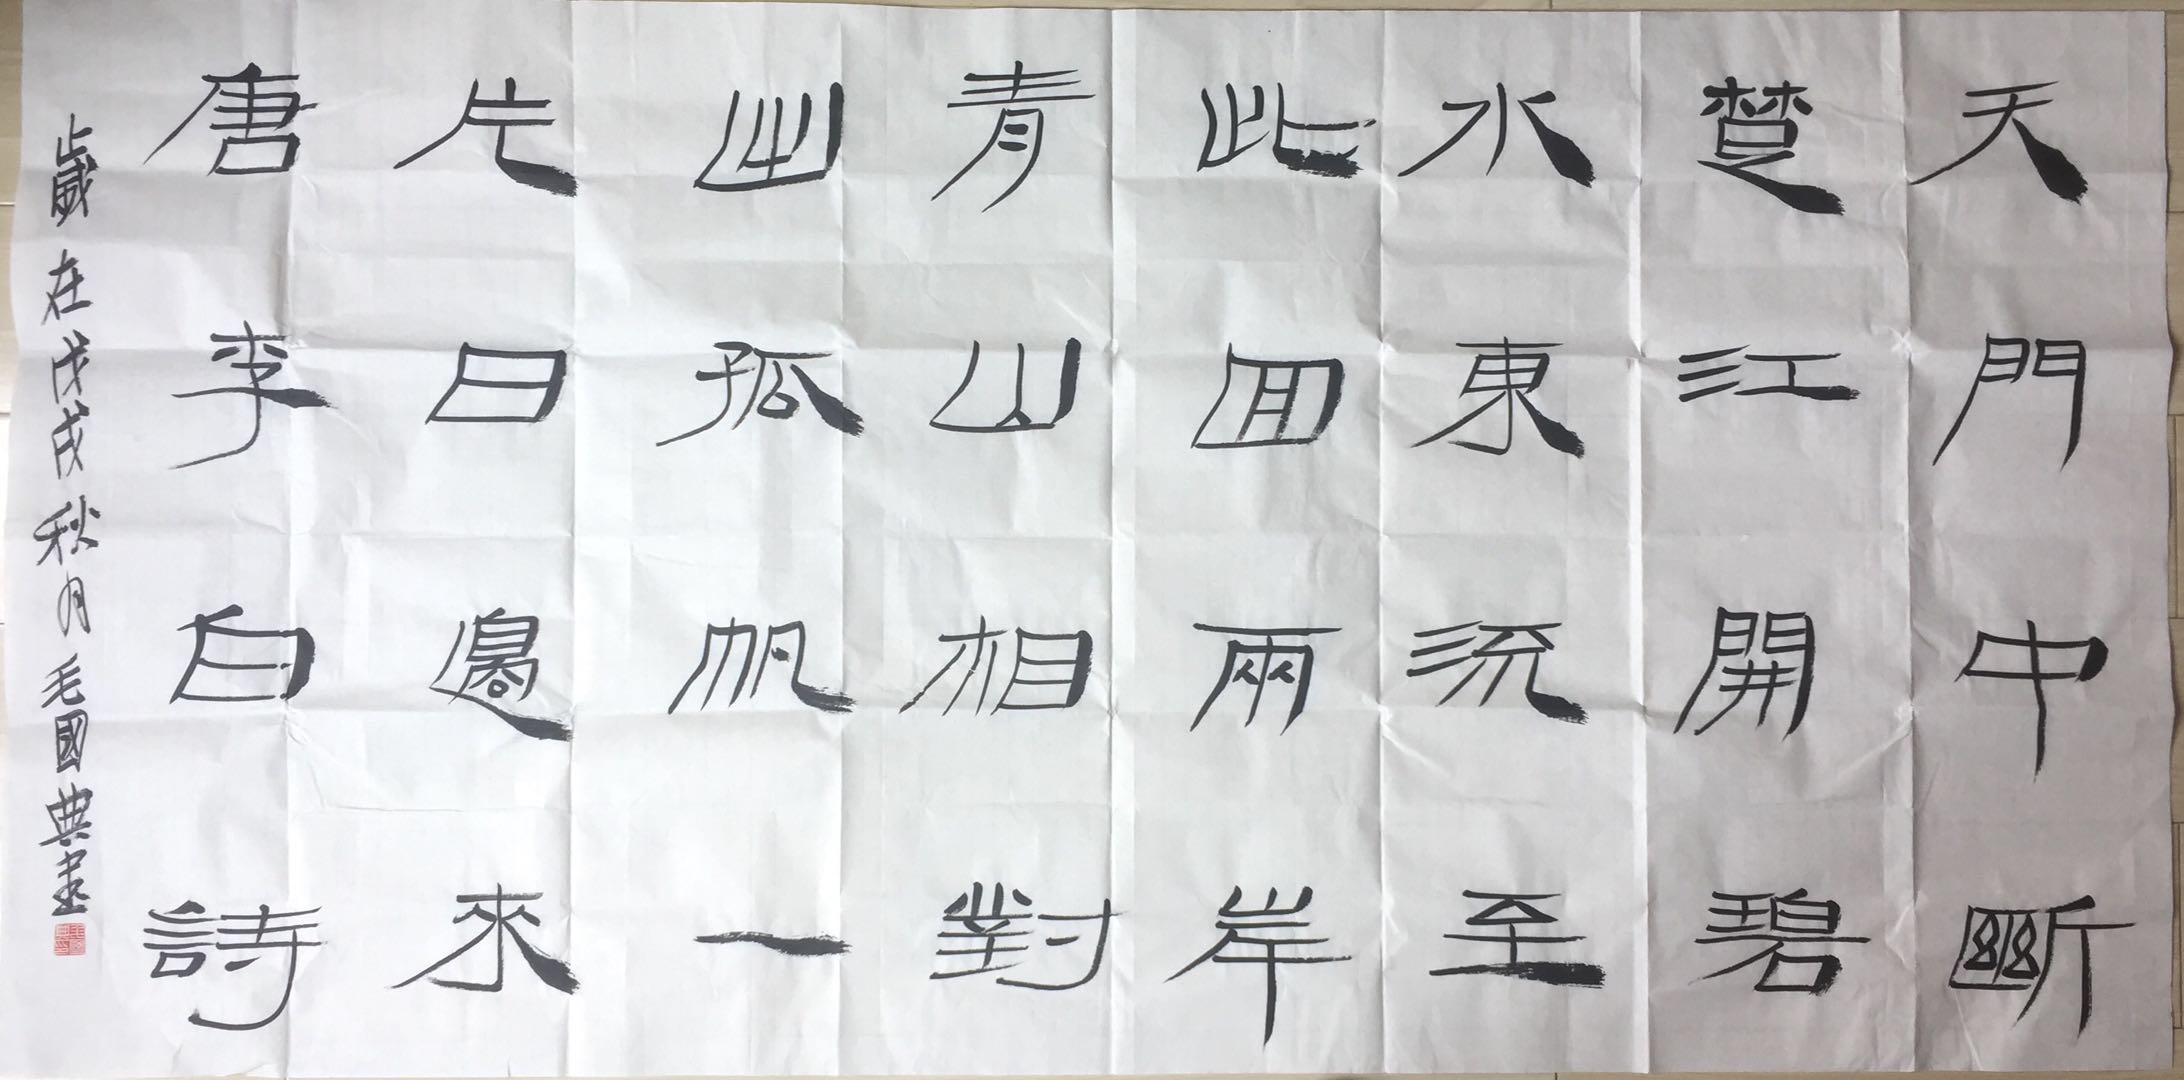 天門中斷
楚江開碧
水東流至
此回兩岸
青山相對
出孤帆一
片日邊來
唐李白詩
歲在戊戌秋月毛國典書